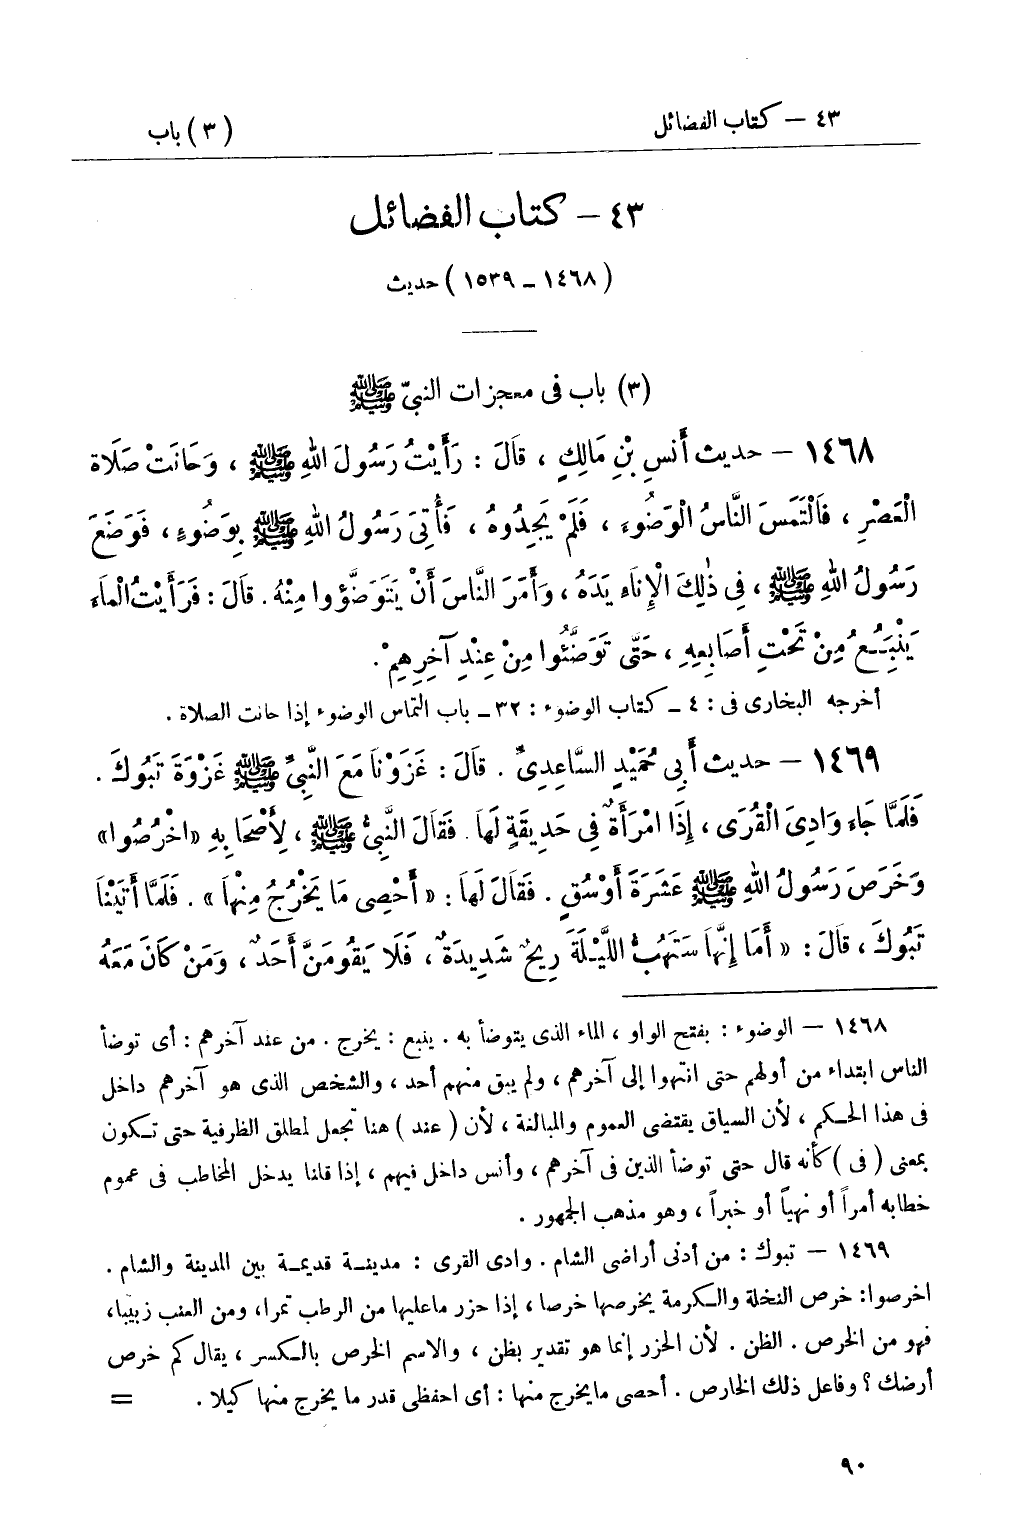 ٤٣ – كتاب الفضائل
(٣) باب
٤٣ – كتاب الفضائل
(١٤٦٨ – ١٥٣٩) حديث
(٣) باب فى معجزات النبىّ ﷺ
١٤٦٨ – حديث أَنَسِ بْنِ مَالِكٍ ، قَالَ : رَأَيْتُ رَسُولَ اللهِ ﷺ ، وَحَانَتْ صَلَاة
الْعَصْرِ ، فَالْتَمَسَ النَّاسُ الْوَضُوءَ ، فَلَمْ يَجِدُوهُ ، فَأُتِىَ رَسُولُ اللهِ ﷺ بِوَضُوءٍ ، فَوَضَعَ
رَسُولُ اللهِ ﷺ ، فِى ذٰلِكَ الْإِنَاءِ يَدَهُ ، وَأَمَرَ النَّاسَ أَنْ يَتَوَضَّؤُوا مِنْهُ . قَالَ : فَرَأَيْتُ الْمَاءَ
يَنْبَُِعُ مِنْ تَحْتِ أَصَابِعِهِ ، حَتَّى تَوَضَّئُوا مِنْ عِنْدِ آخِرِهِمْ .
أخرجه البخارى فى : ٤ – كتاب الوضوء : ٣٢ – باب التماس الوضوء إذا حانت الصلاة .
١٤٦٩ – حديث أَبِى حُمَيْدٍ السَّاعِدِىِّ . قَالَ : غَزَوْنَا مَعَ النَّبِىِّ ﷺ غَزْوَةَ تَبُوكَ .
فَلَمَّا جَاءَ وَادِىَ الْقُرَى ، إِذَا امْرَأَةٌ فِى حَدِيقَةٍ لَهَا . فَقَالَ النَّبِىُّ ﷺ ، لِأَصْحَابِهِ «اخْرُصُوا»
وَخَرَصَ رَسُولُ اللهِ ﷺ عَشَرَةَ أَوْسُقٍ . فَقَالَ لَهَا : « أَحْصِى مَا يَخْرُجُ مِنْهَا » . فَلَمَّا أَتَيْنَا
تَبُوكَ ، قَالَ : « أَمَا إِنَّهَا سَتَهُبُّ اللَّيْلَةَ رِيحٌ شَدِيدَةٌ ، فَلَا يَقُومَنَّ أَحَدٌ ، وَمَنْ كَانَ مَعَهُ
١٤٦٨ – الوضوء : بفتح الواو ، الماء الذى يتوضأ به . ينبع : يخرج . من عند آخرهم : أى توضأ
الناس ابتداء من أولهم حتى انتهوا إلى آخرهم ، ولم يبق منهم أحد ، والشخص الذى هو آخرهم داخل
فى هذا الحكم ، لأن السياق يقتضى العموم والمبالغة ، لأن ( عند ) هنا تجعل لمطلق الظرفية حتى تكون
بمعنى ( فى ) كأنه قال حتى توضأ الذين فى آخرهم ، وأنس داخل فيهم ، إذا قلنا يدخل المخاطب فى عموم
خطابه أمراً أو نهياً أو خبراً ، وهو مذهب الجمهور .
١٤٦٩ – تبوك : من أدنى أراضى الشام . وادى القرى : مدينة قديمة بين المدينة والشام .
اخرصوا: خرص النخلة والكرمة يخرصها خرصا ، إذا حزر ماعليها من الرطب تمرا، ومن العنب زبيبا،
فهو من الخرص . الظن . لأن الحزر إنما هو تقدير بظن ، والاسم الخرص بالكسر ، يقال كم خرص
أرضك ؟ وفاعل ذلك الخارص . أحصى مايخرج منها : أى احفظى قدر ما يخرج منها كيلا .
=
٩٠